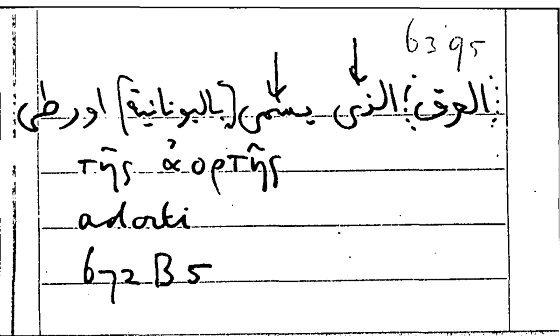 63 95
⁞العرق⁞ الذى يسمى [باليونانية] اورطى
τῆς ἀορτῆς
adorti
672 B 5